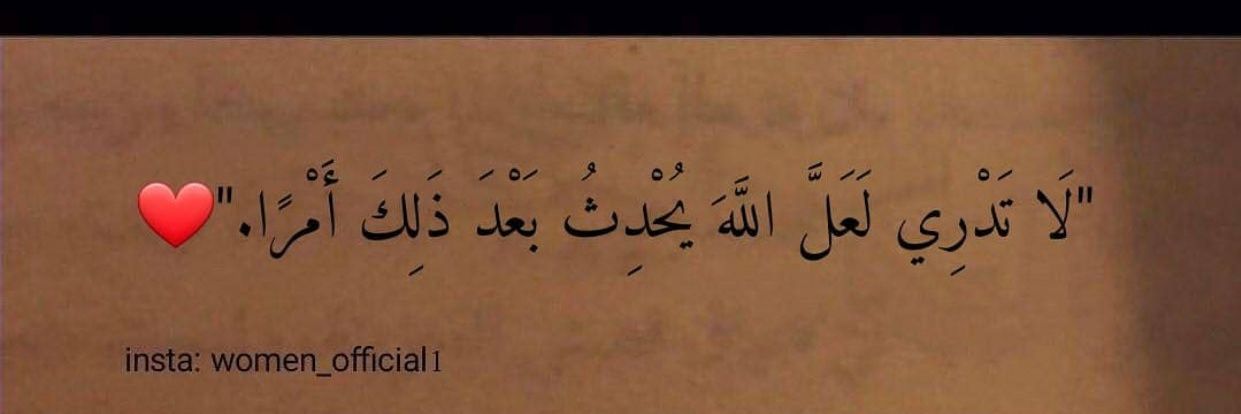 "لَا تَدْرِي لَعَلَّ اللَّهَ يُحْدِثُ بَعْدَ ذَلِكَ أَمْرًا."❤️
insta: women_official1